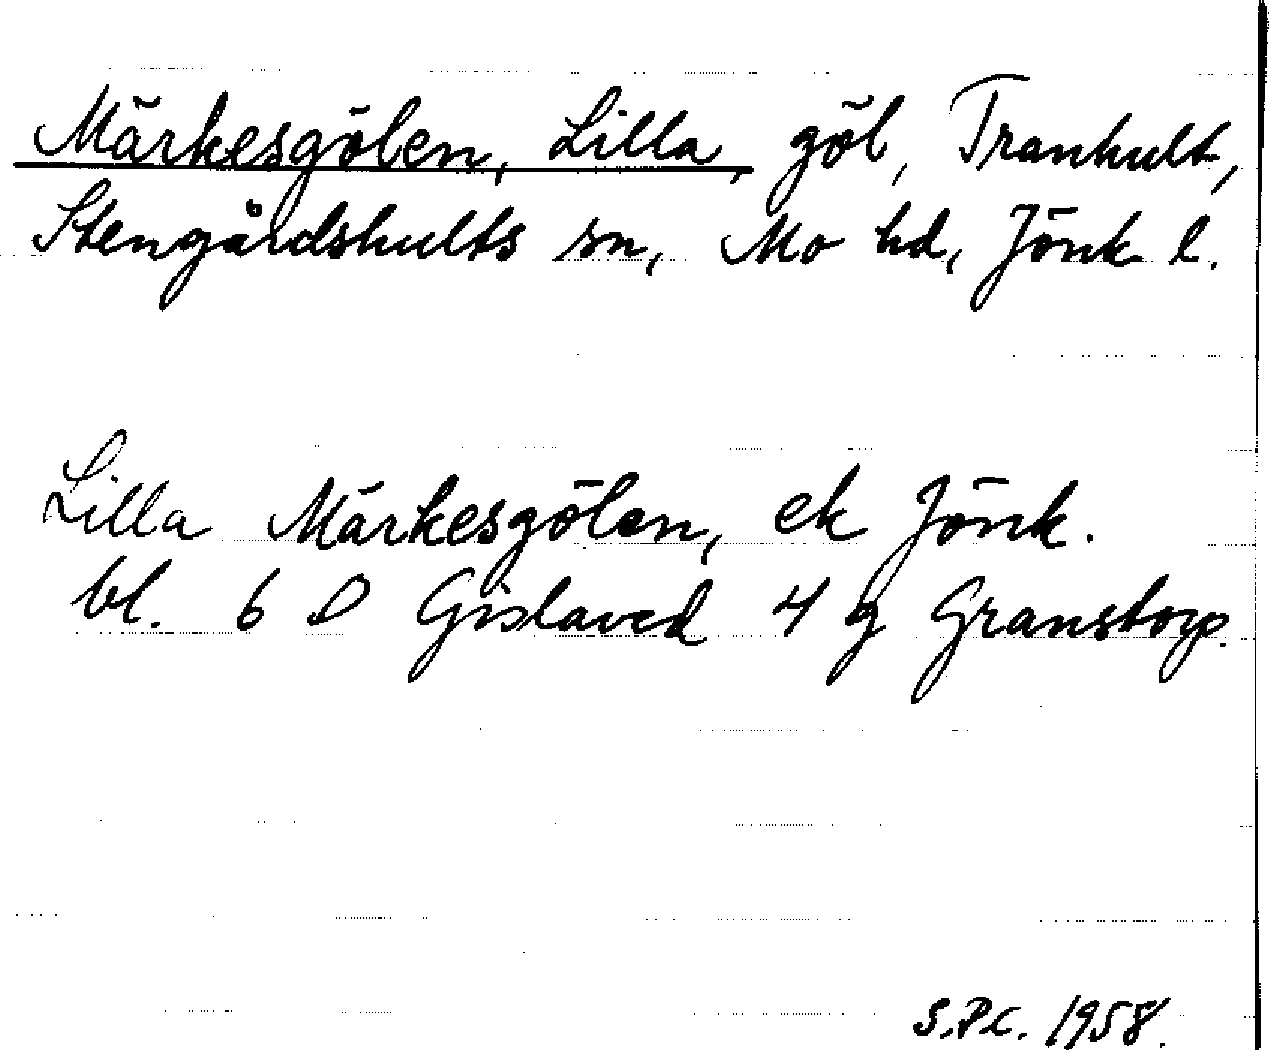 Märkesgölen, Lilla, göl, Tranhult,
Stengårdshults sn, Mo hd, Jönk l.
Lilla Märkesgölen, ek Jönk.
bl. 6 D Gislaved 4 g Granstorp.
S.P.C. 1958.